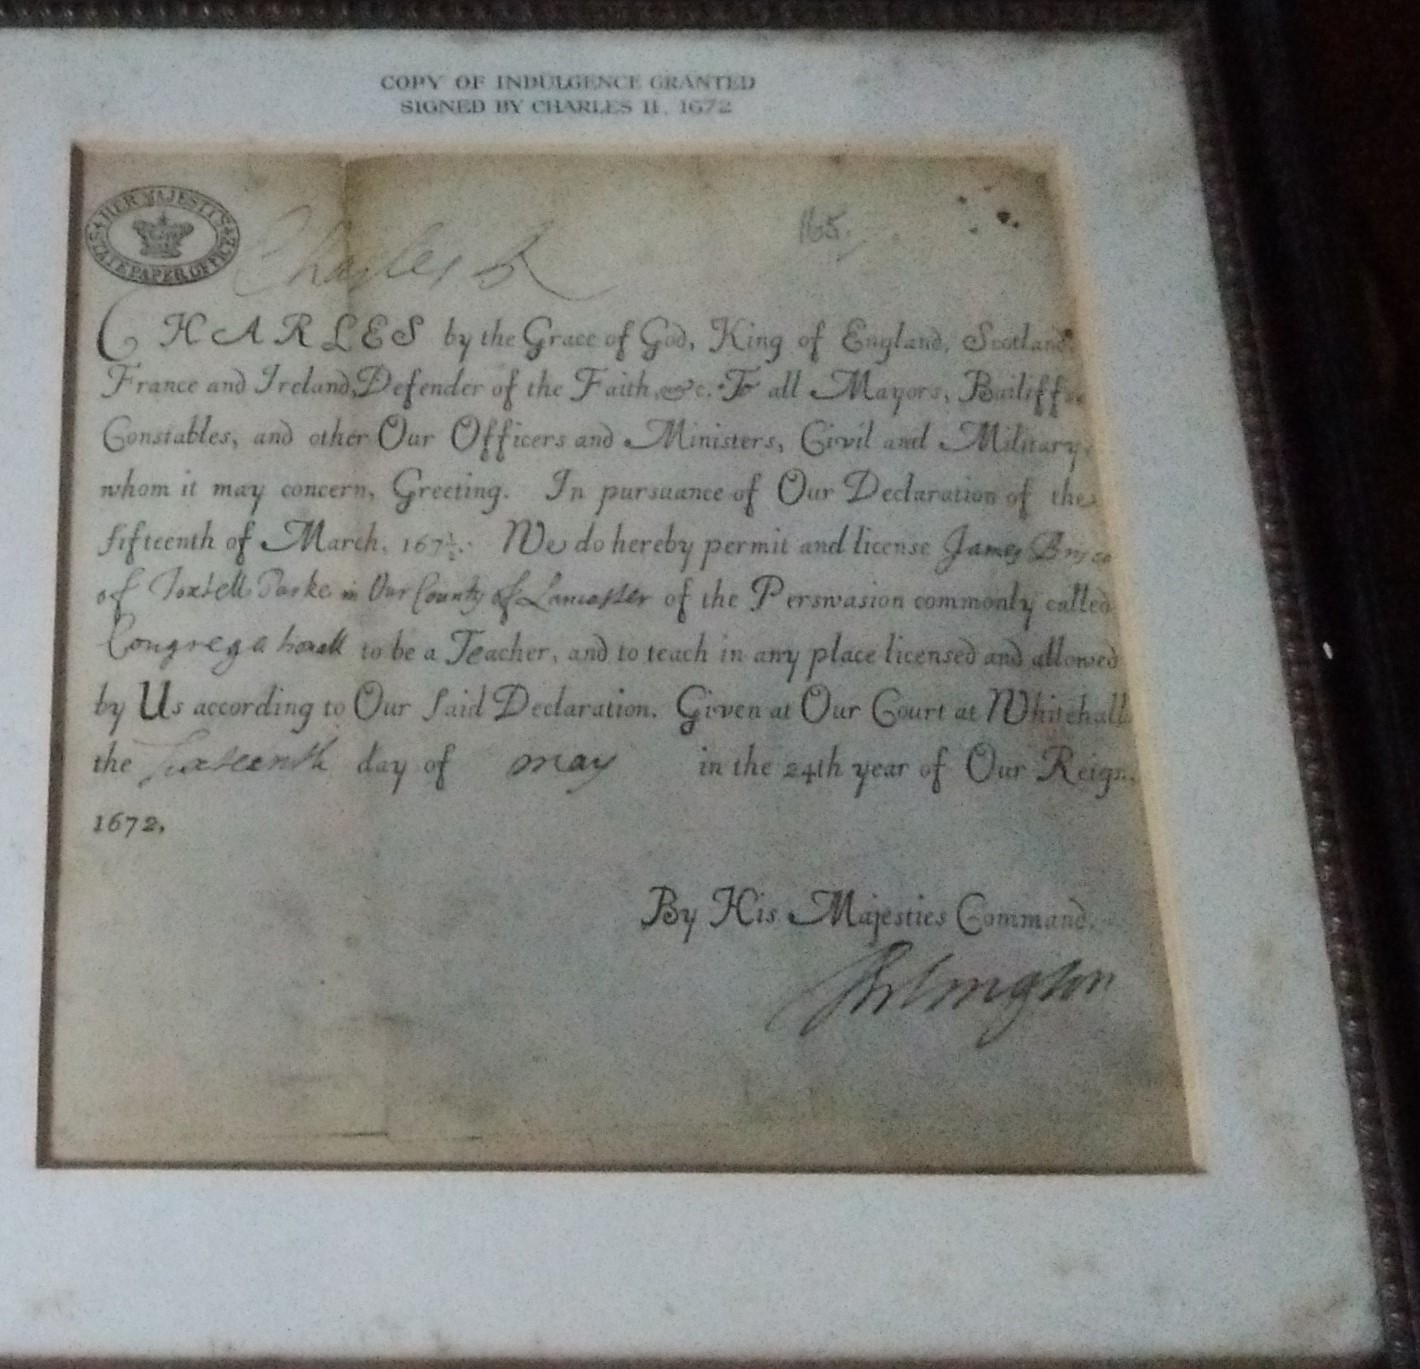 COPY OF INDULGENCE GRANTED
SIGNED BY CHARLES II, 1672
HER MAJESTY'S STATE PAPER OFFICE
Charles R
165.
CHARLES by the Grace of God, King of England, Scotland,
France and Ireland, Defender of the Faith, &c. To all Mayors, Bailiffs
Constables, and other Our Officers and Ministers, Civil and Military,
whom it may concern, Greeting. In pursuance of Our Declaration of the
fifteenth of March, 167½. We do hereby permit and license James
of Toxtell Parke in Our County of Lancaster of the Perswasion commonly called
Congregationall to be a Teacher, and to teach in any place licensed and allowed
by Us according to Our said Declaration. Given at Our Court at Whitehall
the Sixteenth day of may in the 24th year of Our Reign,
1672,
By His Majesties Command.
Arlington